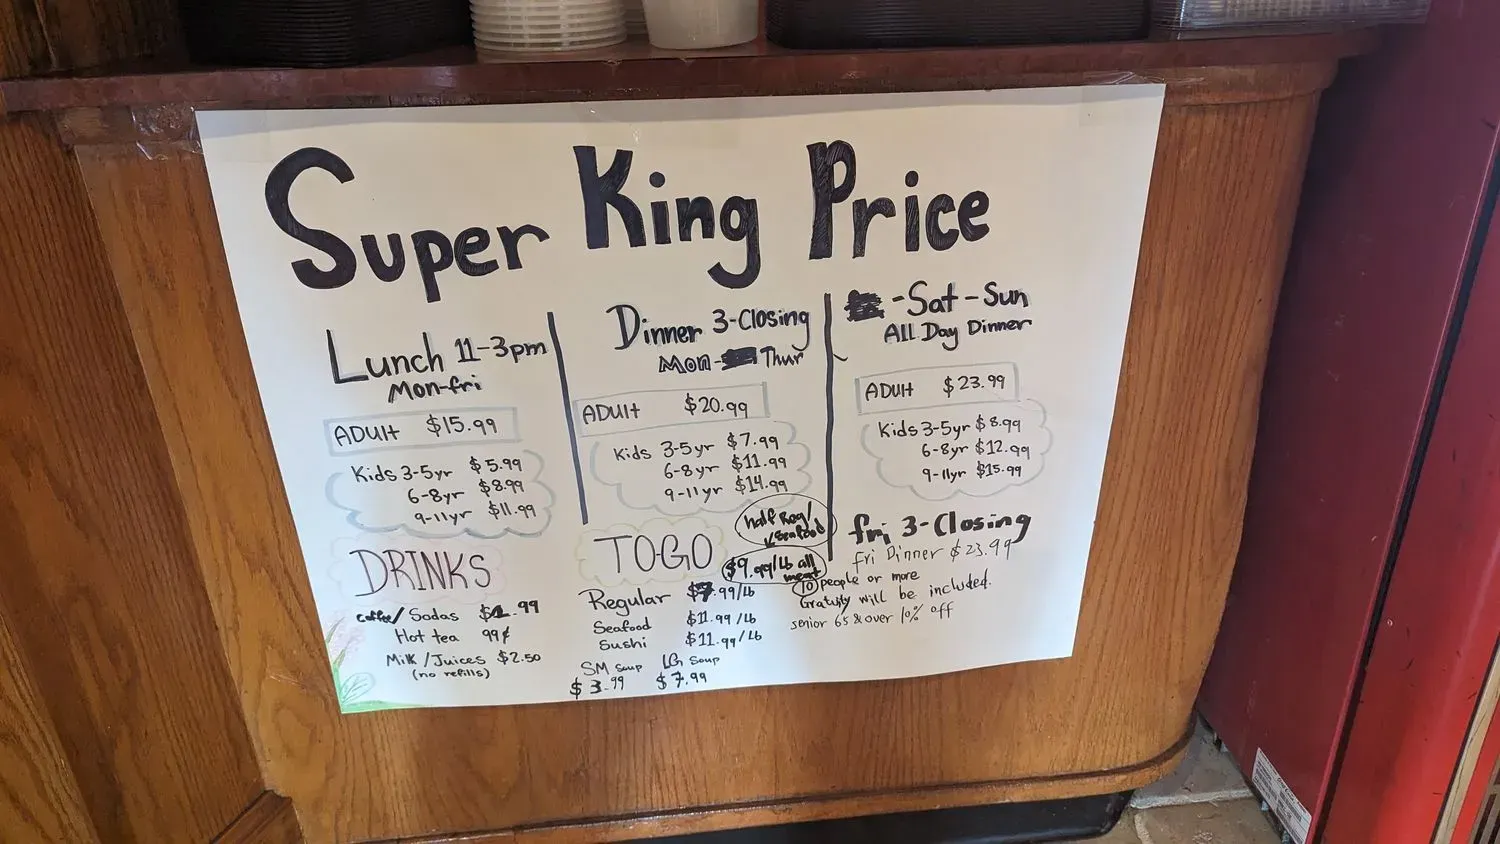 Super King Price
Lunch 11-3pm
Mon-fri
ADUlt $15.99
Kids 3-5yr $5.99
6-8yr $8.99
9-11yr $11.99
DRINKS
coffee/Sodas $1.99
Hot tea 99¢
Milk/Juices $2.50
(no refills)
Dinner 3-Closing
Mon- Thur
ADUlt $20.99
Kids 3-5yr $7.99
6-8yr $11.99
9-11yr $14.99
TOGO
half Reg/
Seafood
$9.99/Lb all
meat
Regular $7.99/Lb
Seafood $11.99/Lb
Sushi $11.99/Lb
SM Soup LG Soup
$3.99 $7.99
-Sat-Sun
All Day Dinner
ADUlt $23.99
Kids 3-5yr $8.99
6-8yr $12.99
9-11yr $15.99
fri 3-Closing
fri Dinner $23.99
10 people or more
Gratuity will be included.
senior 65 & over 10% off